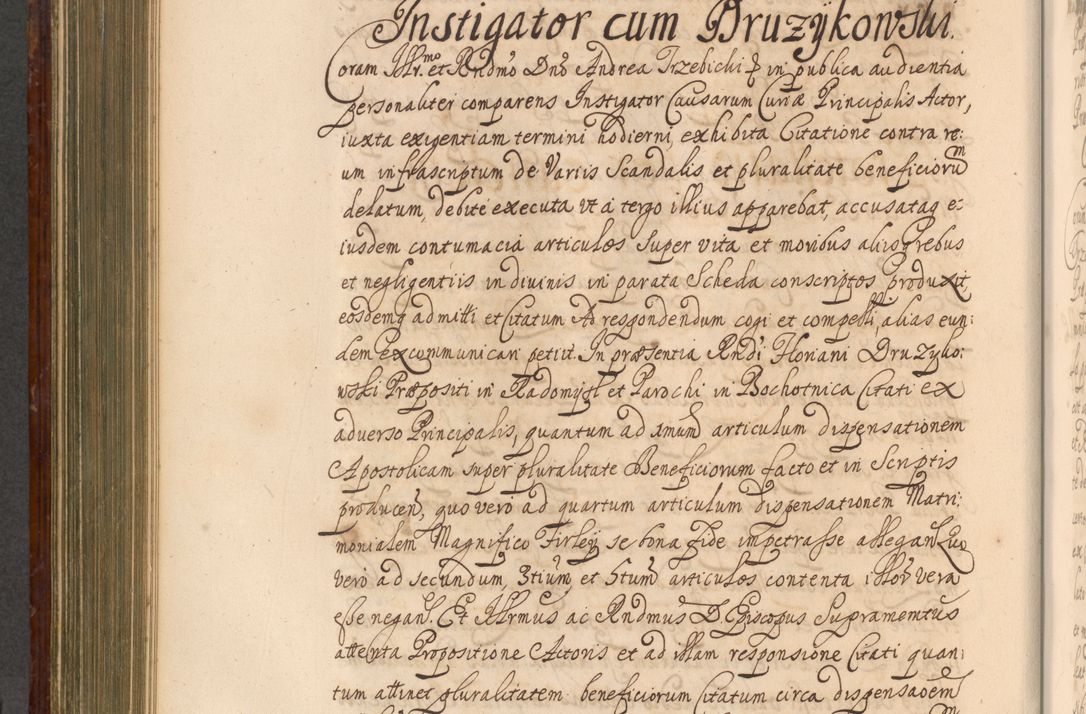 Instigator cum Druzÿkowski.
Coram Illr.mo et Rndmo Dno Andrea Trzebicki & in publica audientia
personaliter comparens Instigator Causarum Curiæ Principalis Actor,
iuxta exigentiam termini hodierni, exhibita Citatione contra re:
um infrascriptum de Variis Scandalis et pluralitate beneficiorum
delatum, debite executa ut a tergo illius apparebat, accusataq e:
iusdem contumacia articulos super vita et moribus aliisq rebus
et negligentiis in divinis in parata Scheda conscriptos produxit,
eosdemq admitti et Citatum Ad respondendum cogi et compelli, alias eun:
dem excommunicari petiit. In præsentia Rndi Floriani Druzyko:
wski Præpositi in Radomysl et Parochi in Bochotnica Citati ex
adverso Principalis, quantum ad 1mum articulum dispensationem
Apostolicam super pluralitate Beneficiorum facto et in Scriptis
producen, quo vero ad quartum articulum dispensationem Matri:
monialem Magnifico Firley se bona fide impetrasse allegan. Quo
vero ad secundum, 3tium et 5tum articulos contenta illor vera
esse negan. Et Illrmus ac Rndmus D Episcopus Supramemtus
attenta Propositione Actoris et ad illam responsione Citati quan:
tum attinet pluralitatem beneficiorum Citatum circa dispensaoem